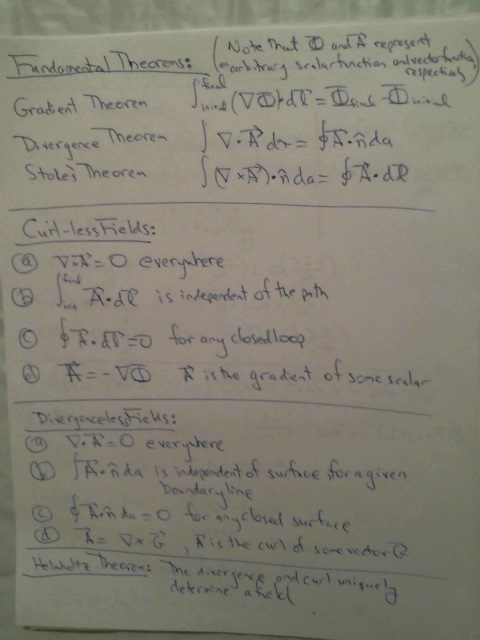 Fundamental Theorems: (Note that Φ and A⃗ represent
arbitrary scalar function and vector function
respectively)
Gradient Theorem ∫_initial^final (∇Φ)·dl⃗ = Φ_final - Φ_initial
Divergence Theorem ∫ ∇·A⃗ dτ = ∮ A⃗·n̂ da
Stokes Theorem ∫(∇×A⃗)·n̂ da = ∮ A⃗·dl⃗
Curl-less Fields:
ⓐ ∇×A⃗ = 0 everywhere
ⓑ ∫_ini^final A⃗·dl⃗ is independent of the path
ⓒ ∮ A⃗·dl⃗ = 0 for any closed loop
ⓓ A⃗ = -∇Φ A⃗ is the gradient of some scalar
Divergenceless Fields:
ⓐ ∇·A⃗ = 0 everywhere
ⓑ ∫ A⃗·n̂ da is independent of surface for a given
boundary line
ⓒ ∮ A⃗·n̂ da = 0 for any closed surface
ⓓ A⃗ = ∇×G⃗, A⃗ is the curl of some vector G⃗
Helmholtz Theorem: The divergence and curl uniquely
determine a field